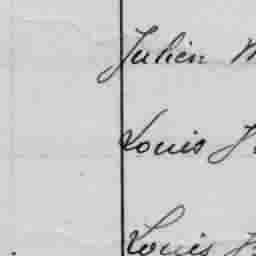 Julien
Louis
Louis